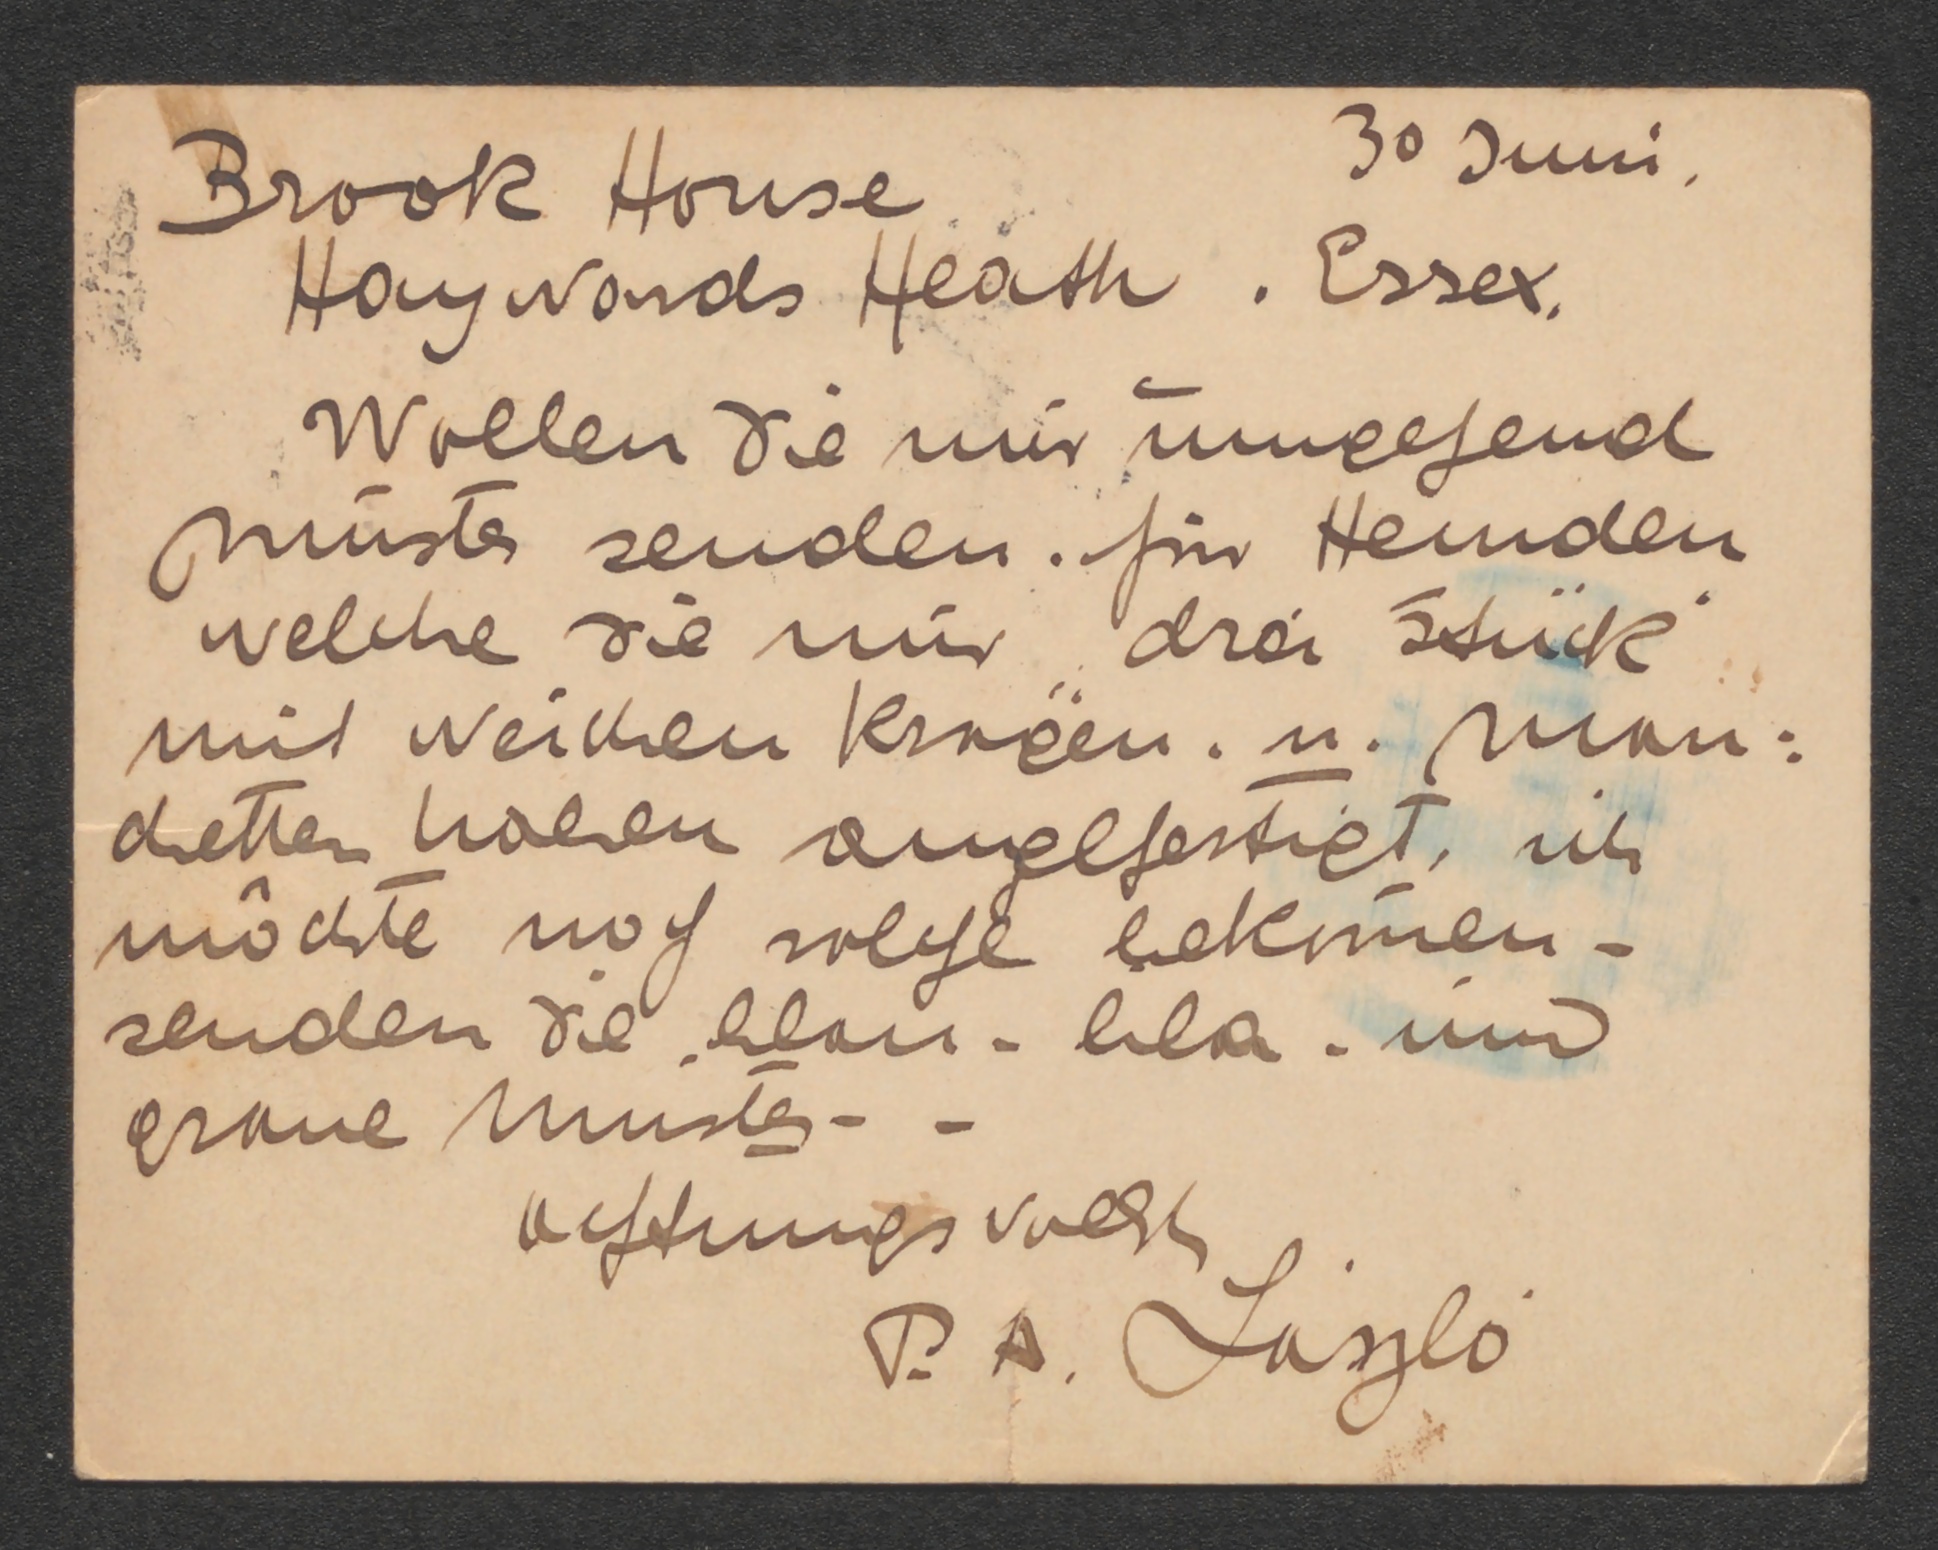 30 Juni.
Brook House
Haywards Heath. Essex.
Wollen Sie mir umgehend
Muster senden. für Hemden
welche Sie mir drei Stück
mit weichen Krägen. u. Man:
chetten haben angefertigt, ich
möchte noch solche bekommen -
senden Sie blau - lila - und
graue Muster - -
achtungsvollst
P. A. László